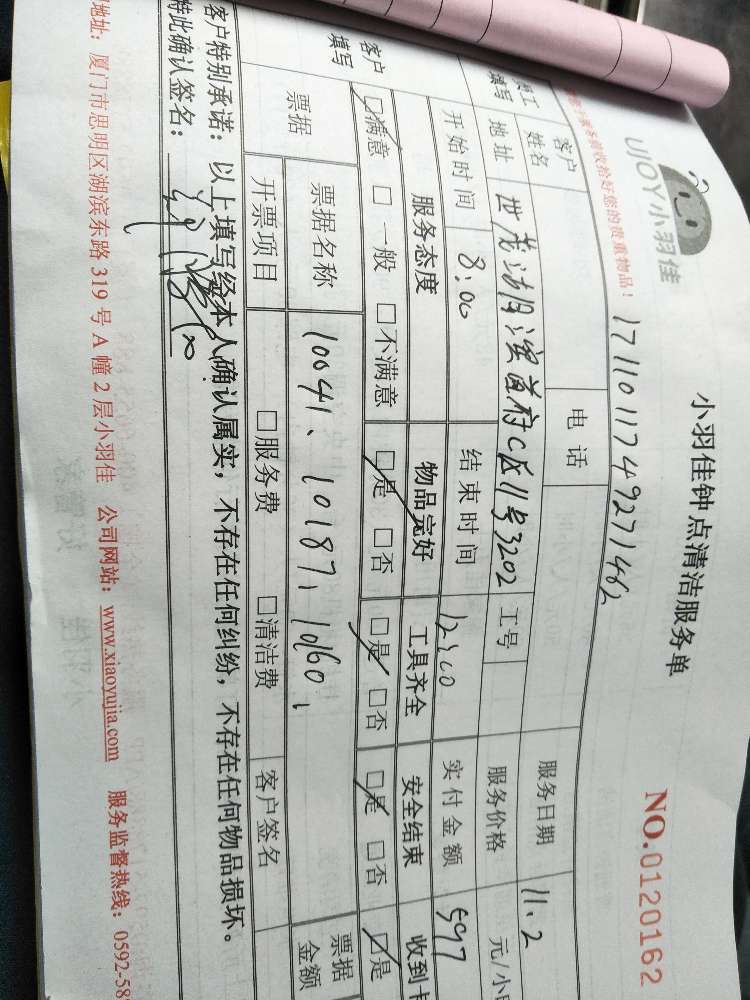 小羽佳钟点清洁服务单
NO.0120162
UJOY小羽佳
171101174927 1462
贵重物品!
客户姓名 电话 服务日期 11.2
员工填写 地址 世茂湖滨首府C区11号3202 工号 服务价格 元/小
开始时间 8:00 结束时间 12:00 实付金额 597
客户填写 服务态度 物品完好 工具齐全 安全结束 收到卡
□满意 □一般 □不满意 □是 □否 □是 □否 □是 □否 □是
票据 票据名称 10041、10187、10160、 票据金额
开票项目 □服务费 □清洁费 客户签名
客户特别承诺:以上填写经本人确认属实,不存在任何纠纷,不存在任何物品损坏。
特此确认签名:
地址:厦门市思明区湖滨东路319号A幢2层小羽佳 公司网站:www.xiaoyujia.com 服务监督热线:0592-58